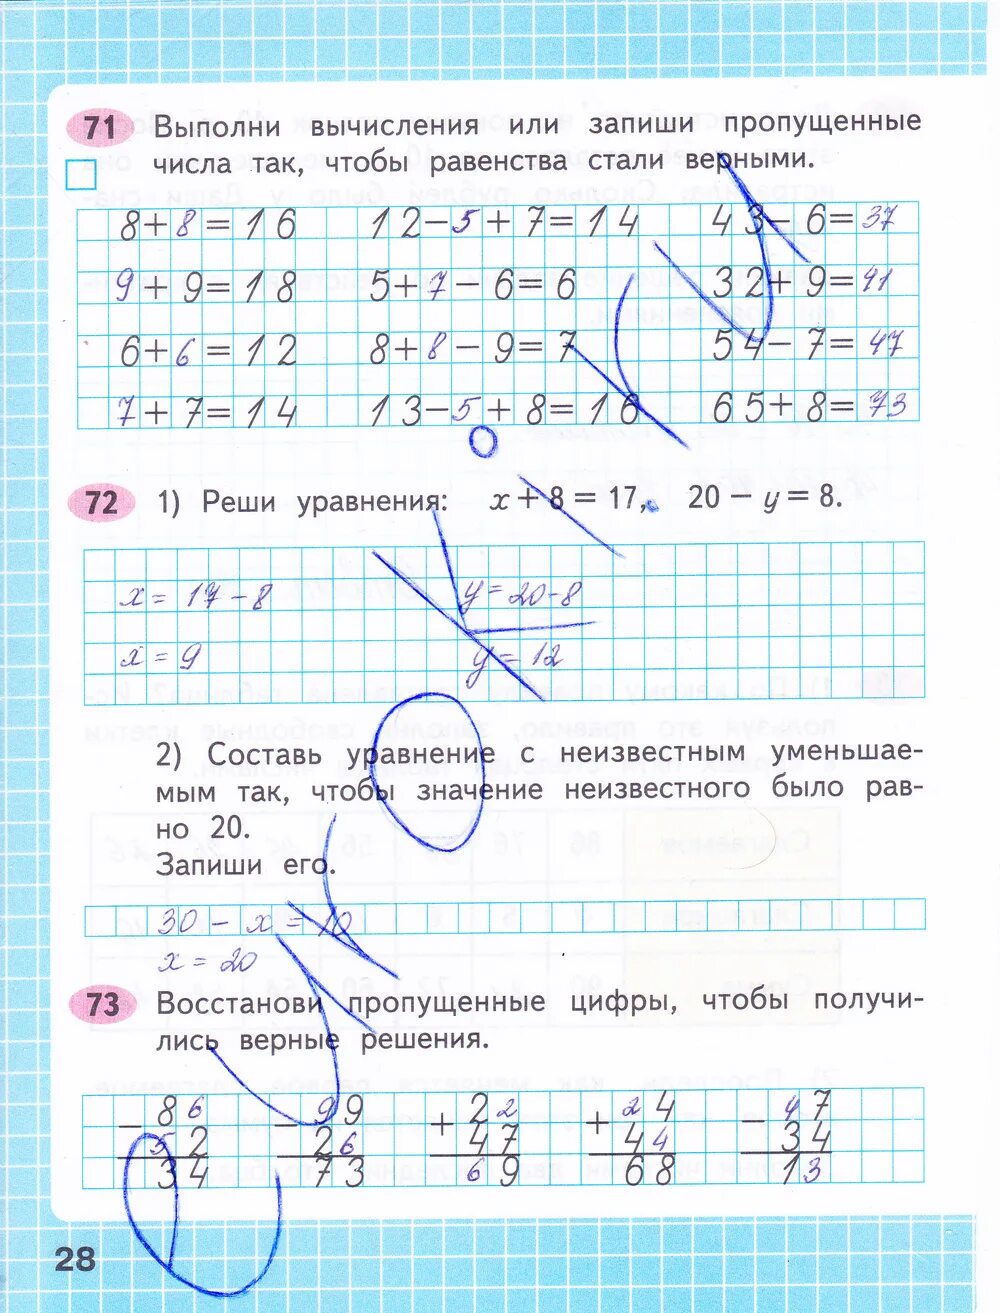 71 Выполни вычисления или запиши пропущенные
числа так, чтобы равенства стали верными.
8+8=16 12-5+7=14 43-6=37
9+9=18 5+7-6=6 32+9=41
6+6=12 8+8-9=7 54-7=47
7+7=14 13-5+8=16 65+8=73
72 1) Реши уравнения: x + 8 = 17, 20 − y = 8.
x = 17 - 8 y = 20-8
x = 9 y = 12
2) Составь уравнение с неизвестным уменьшае-
мым так, чтобы значение неизвестного было рав-
но 20.
Запиши его.
30 - x = 10
x = 20
73 Восстанови пропущенные цифры, чтобы получи-
лись верные решения.
86 99 22 24 47
- 52 - 26 + 47 + 44 - 34
34 73 69 68 13
28